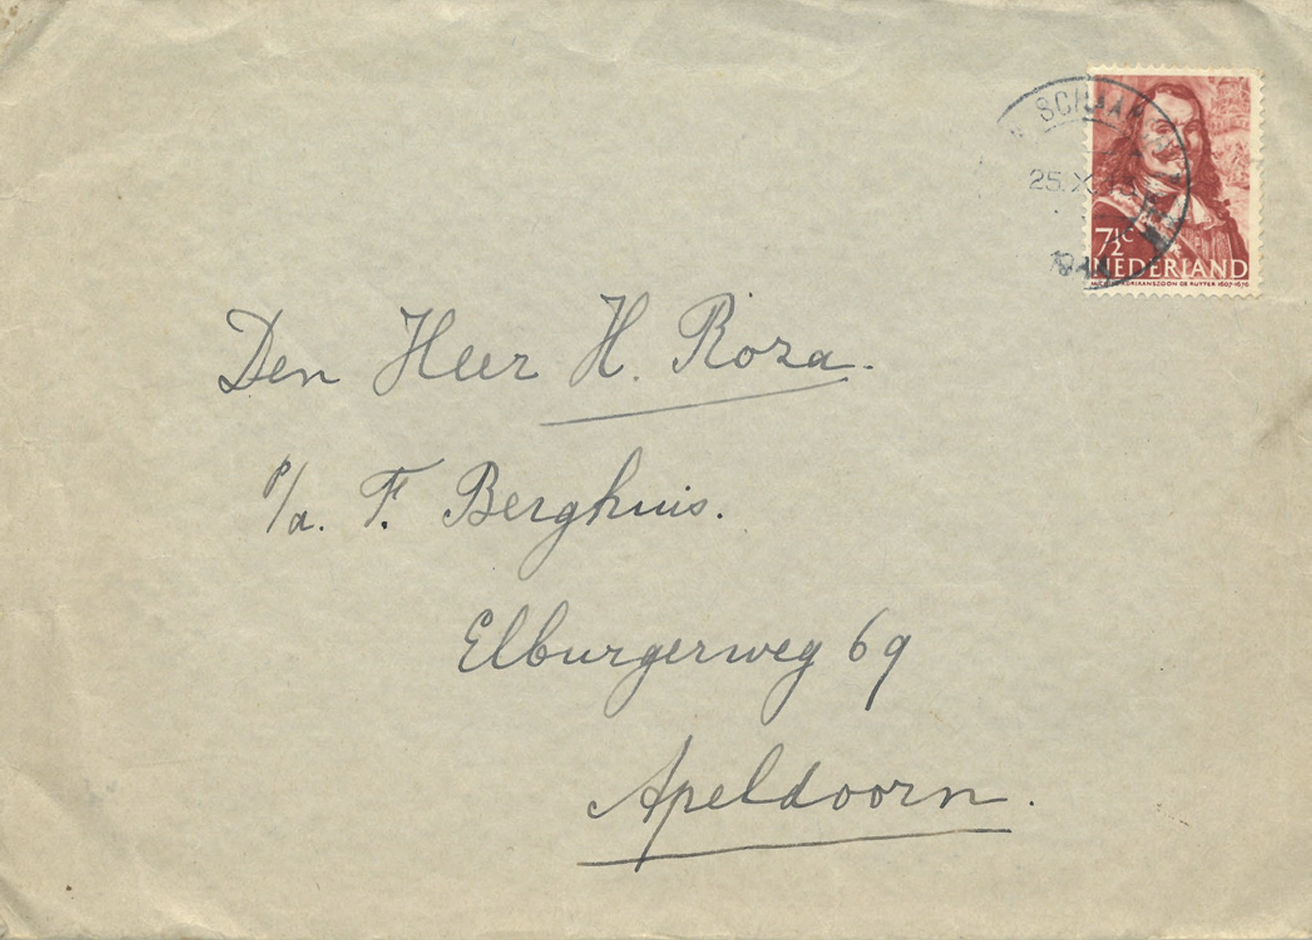 SCHAAR
25.X.
7½c
NEDERLAND
MICHIEL ADRIAANSZOON DE RUYTER 1607-1676
Den Heer H. Roza.
p/a. F. Berghuis.
Elburgerweg 69
Apeldoorn.